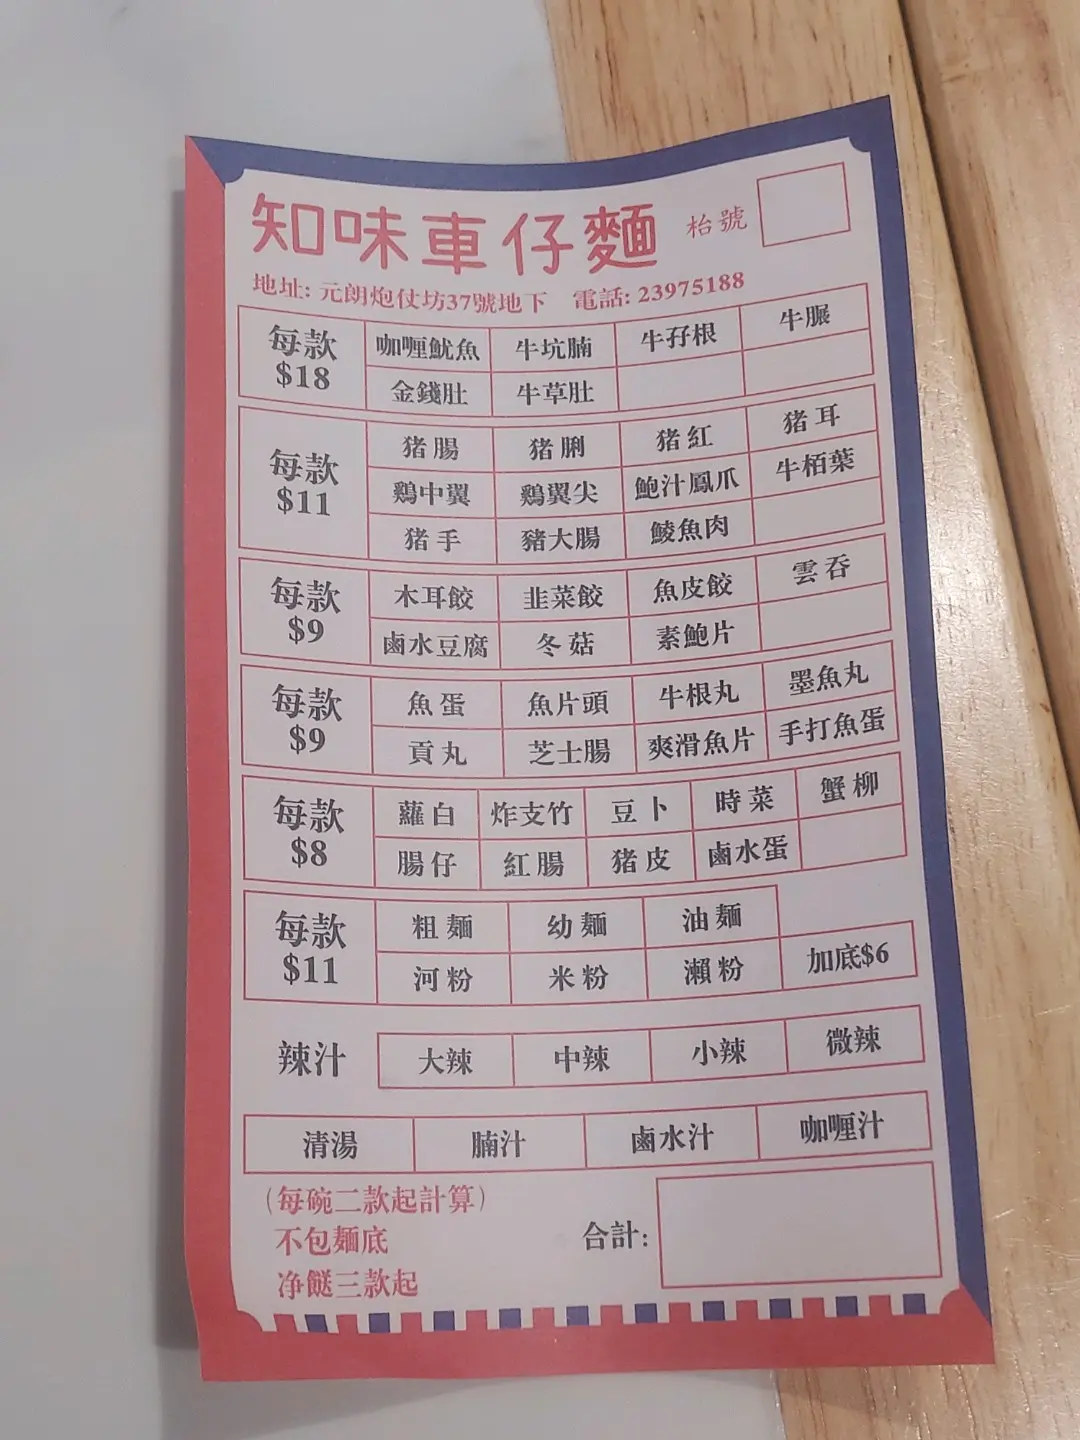 知味車仔麵 枱號
地址: 元朗炮仗坊37號地下 電話: 23975188
每款 $18
咖喱魷魚 牛坑腩 牛孖根 牛𦟌
金錢肚 牛草肚
每款 $11
猪腸 猪脷 猪紅 猪耳
鷄中翼 鷄翼尖 鮑汁鳳爪 牛栢葉
猪手 豬大腸 鯪魚肉
每款 $9
木耳餃 韭菜餃 魚皮餃 雲吞
鹵水豆腐 冬菇 素鮑片
每款 $9
魚蛋 魚片頭 牛根丸 墨魚丸
貢丸 芝士腸 爽滑魚片 手打魚蛋
每款 $8
蘿白 炸支竹 豆卜 時菜 蟹柳
腸仔 紅腸 猪皮 鹵水蛋
每款 $11
粗麵 幼麵 油麵
河粉 米粉 瀨粉 加底$6
辣汁 大辣 中辣 小辣 微辣
清湯 腩汁 鹵水汁 咖喱汁
(每碗二款起計算)
不包麵底
合計:
净餸三款起